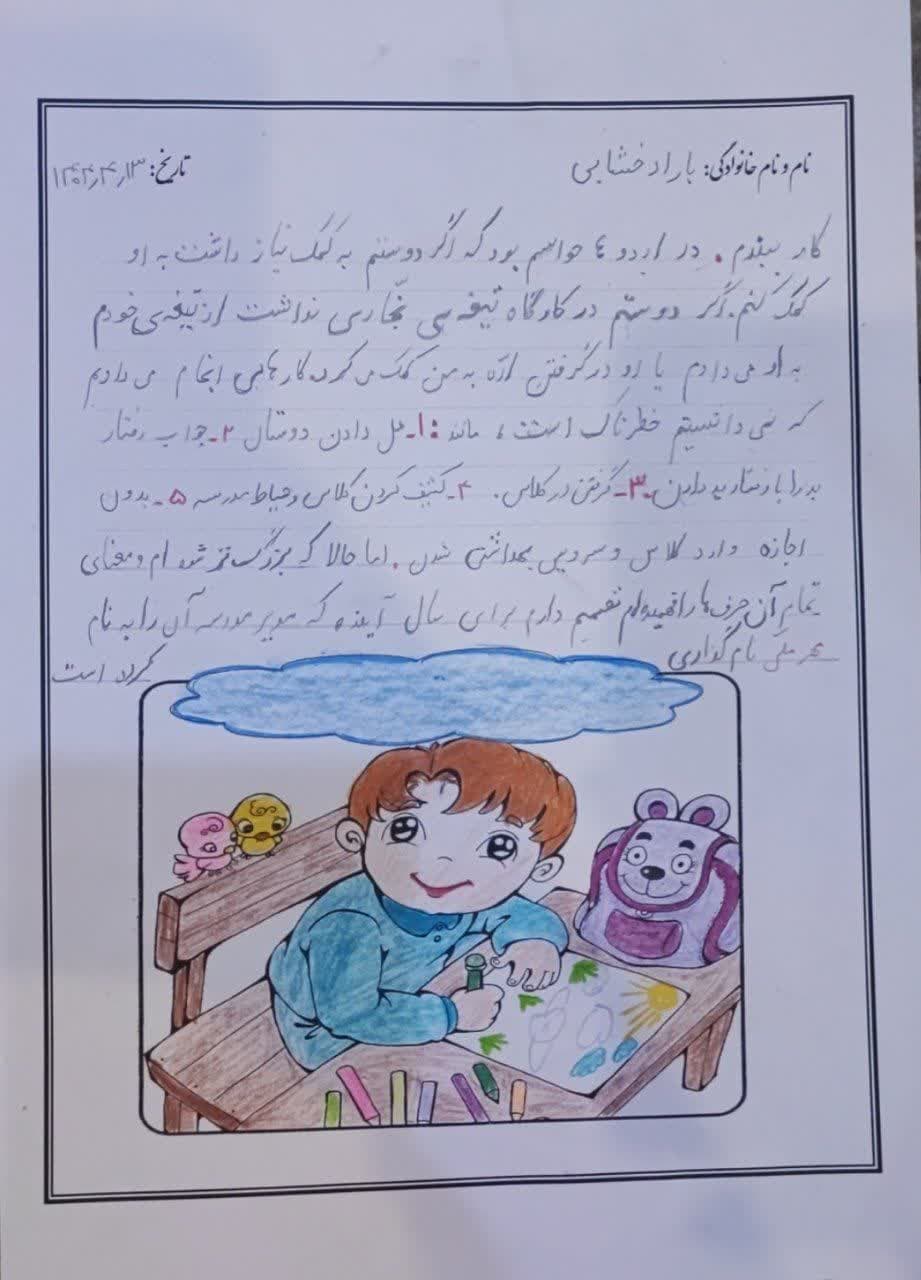 نام و نام خانوادگی: باراد خشابی
تاریخ: ۱۴۰۴٫۴٫۱۳
کار ببندم. در اردو ها حواسم بود که اگر دوستم به کمک نیاز داشت به او
کمک کنم. اگر دوستم در کارگاه تیغه ی نجاری نداشت از تیغه ی خودم
به او می دادم یا او در گرفتن ارّه به من کمک می کرد. کار هایی انجام می دادیم
که نمی دانستیم خطرناک است، مانند: ۱ـ هل دادن دوستان ۲ـ جواب رفتار
بد را با رفتار بد دادن. ۳ـ گرفتن در کلاس. ۴ـ کثیف کردن کلاس و حیاط مدرسه ۵ـ بدون
اجازه وارد کلاس و سرویس بهداشتی شدن. اما حالا که بزرگ تر شده ام و معنای
تمام آن حرف ها را فهمیده ام تصمیم دارم برای سال آینده که مدیر مدرسه آن را به نام
نام گذاری کرده است